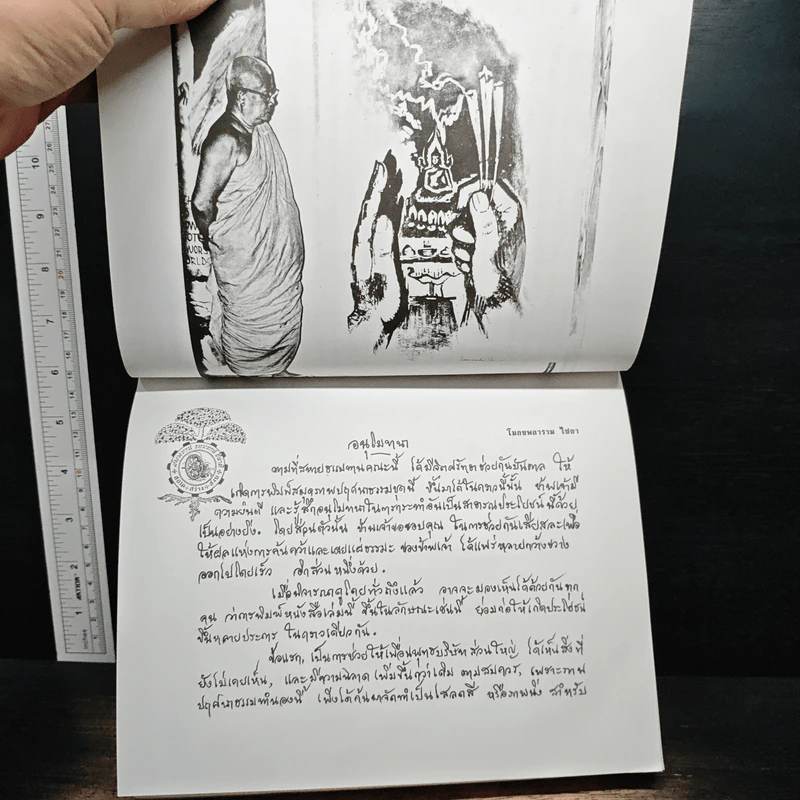 โมกขพลาราม ไชยา
อนุโมทนา
ตามที่สหายธรรมทานคณะนี้ ได้มีจิตศรัทธาช่วยกันบันดาล ให้
เกิดการพิมพ์สมุดภาพปฤศนาธรรมชุดนี้ ขึ้นมาได้ในคราวนี้นั้น ข้าพเจ้ามี
ความยินดี และรู้สึกอนุโมทนาในการกระทำอันเป็นสาธารณประโยชน์นี้ด้วย
เป็นอย่างยิ่ง. โดยส่วนตัวนั้น ข้าพเจ้าขอขอบคุณ ในการช่วยกันเสียสละเพื่อ
ให้ผลแห่งการค้นคว้าและเผยแผ่ธรรมะ ของข้าพเจ้า ได้แพร่หลายกว้างขวาง
ออกไปโดยเร็ว อีกส่วนหนึ่งด้วย.
เมื่อพิจารณาดูโดยทั่วถึงแล้ว อาจจะมองเห็นได้ด้วยกันทุก
คน ว่าการพิมพ์หนังสือเล่มนี้ ขึ้นในลักษณะเช่นนี้ ย่อมก่อให้เกิดประโยชน์
ขึ้นหลายประการ ในคราวเดียวกัน.
ข้อแรก, เป็นการช่วยให้เพื่อนพุทธบริษัทส่วนใหญ่ ได้เห็นสิ่งที่
ยังไม่เคยเห็น, และมีความฉลาด เพิ่มขึ้นกว่าเดิม ตามสมควร, เพราะภาพ
ปฤศนาธรรมทำนองนี้ เพิ่งได้ค้นมาจัดทำเป็นสไลด์สี หรือภาพนิ่ง สำหรับ